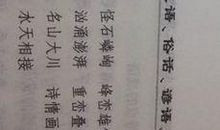 语、俗话、谚语、
怪石嶙峋 峰峦雄
汹涌澎湃 重峦叠
名山大川 诗情画
水天相接